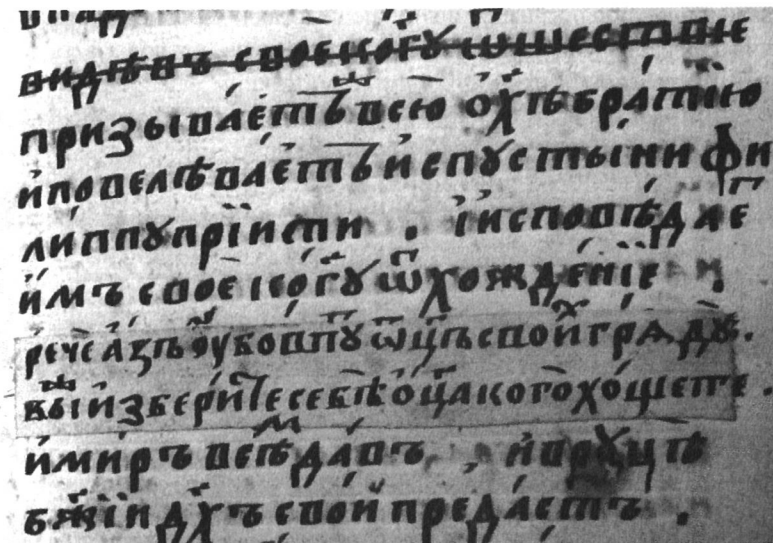 видѣвъ своє к бг҃у ѿшествіе
призыває́тъ всю ѡ҆ х҃ѣ бра́тїю
и҆ повелѣва́єтъ и҆ с пусты́ни фи
ли́ппу прїити . и҆ исповѣ́дає
и҆мъ своє к бг҃у ѿхожде́нїе .
рече а҆зъ ѹ҆бо в пу ѿц҃ъ свои́ грѧду̀ .
вы̀ и҆збери́те себѣ̀ ѻ҆ц҃а кого хо́щете .
и҆ ми́ръ всѣ̑ да́въ и҆ в руцѣ̀
бж҃їи дх҃ъ свой преда́етъ .